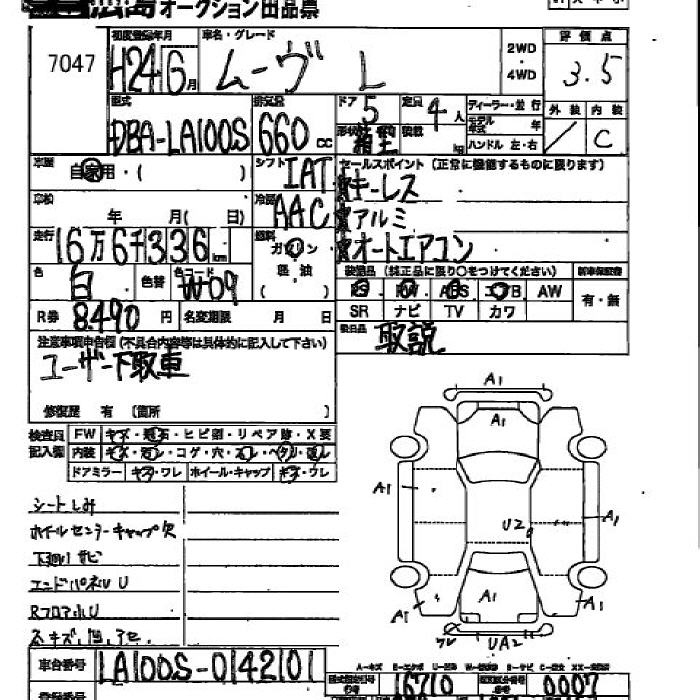 広島オークション出品票
7047
初度登録年月 車名・グレード
H24 6月 ムーヴ L
2WD・4WD
評価点
3.5
外装 内装
／ C
型式 排気量
DBA-LA100S 660cc
ドア 5 定員 4人
形状 積載 kg
ディーラー・並行
モデル年式 年
ハンドル 左・右
車歴 自家用・( )
シフト IAT
セールスポイント (正常に機能するものに限ります)
キーレス
アルミ
オートエアコン
車検 年 月( 日)
冷房 AAC
走行 16万6千336km
燃料 ガソリン 軽油 ( )
色 白 色替 色コード W09
装備品 (純正品に限り○をつけてください)
PS PW ABS エアB AW
SR ナビ TV カワ
新車保証書
有・無
R券 8490円 名変期限 月 日
取説
注意事項申告欄 (不具合内容等は具体的に記入して下さい)
ユーザー下取車
修復歴 有 [箇所 ]
検査員記入欄
FW キズ・飛石・ヒビ割・リペア跡・X要
内装
ドアミラー キズ・ワレ ホイール・キャップ キズ・ワレ
シートしみ
ホイールセンターキャップ欠
下廻りサビ
エンドパネルU
RフロアUル
A1
A1
A1
U2
A1
A1
A1
A1
ワレ UA2
車台番号 LA100S-0142101
16710
0007